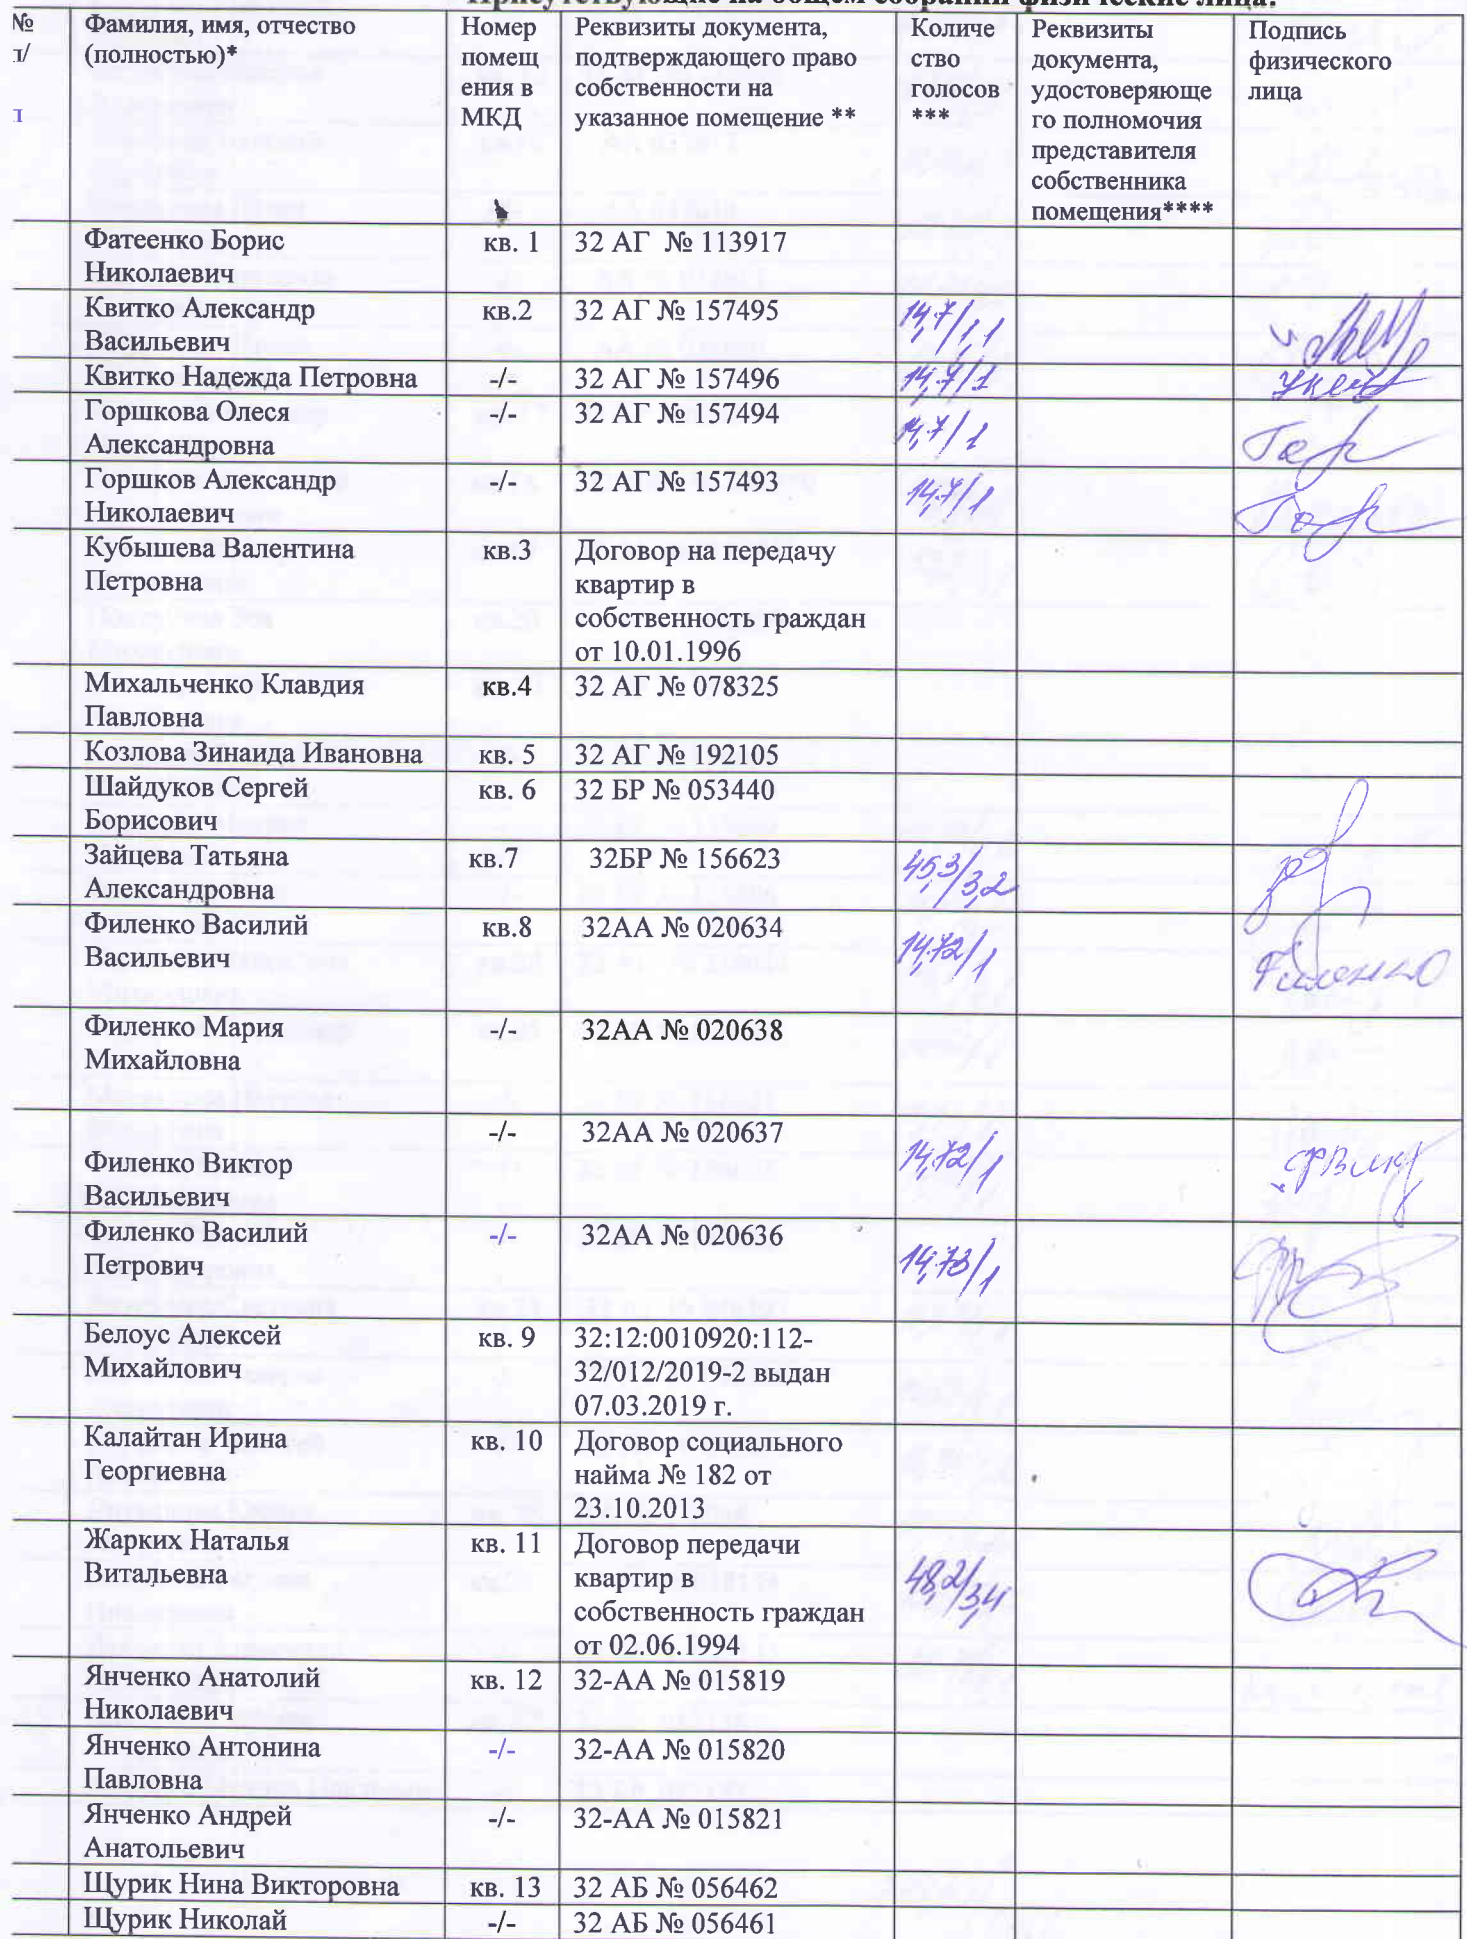 Присутствующие на общем собрании физические лица:
№
п/
п
Фамилия, имя, отчество
(полностью)*
Номер
помещ
ения в
МКД
Реквизиты документа,
подтверждающего право
собственности на
указанное помещение **
Количе
ство
голосов
***
Реквизиты
документа,
удостоверяюще
го полномочия
представителя
собственника
помещения****
Подпись
физического
лица
Фатеенко Борис
Николаевич
кв. 1
32 АГ № 113917
Квитко Александр
Васильевич
кв.2
32 АГ № 157495
14,7/1,1
Квитко Надежда Петровна
-/-
32 АГ № 157496
14,7/1
Горшкова Олеся
Александровна
-/-
32 АГ № 157494
14,7/1
Гор
Горшков Александр
Николаевич
-/-
32 АГ № 157493
14,7/1
Гор
Кубышева Валентина
Петровна
кв.3
Договор на передачу
квартир в
собственность граждан
от 10.01.1996
Михальченко Клавдия
Павловна
кв.4
32 АГ № 078325
Козлова Зинаида Ивановна
кв. 5
32 АГ № 192105
Шайдуков Сергей
Борисович
кв. 6
32 БР № 053440
Зайцева Татьяна
Александровна
кв.7
32БР № 156623
45,3/3,2
Филенко Василий
Васильевич
кв.8
32АА № 020634
14,72/1
Филенко
Филенко Мария
Михайловна
-/-
32АА № 020638
Филенко Виктор
Васильевич
-/-
32АА № 020637
14,72/1
Филенко Василий
Петрович
-/-
32АА № 020636
14,73/1
Белоус Алексей
Михайлович
кв. 9
32:12:0010920:112-
32/012/2019-2 выдан
07.03.2019 г.
Калайтан Ирина
Георгиевна
кв. 10
Договор социального
найма № 182 от
23.10.2013
Жарких Наталья
Витальевна
кв. 11
Договор передачи
квартир в
собственность граждан
от 02.06.1994
48,2/3,4
Янченко Анатолий
Николаевич
кв. 12
32-АА № 015819
Янченко Антонина
Павловна
-/-
32-АА № 015820
Янченко Андрей
Анатольевич
-/-
32-АА № 015821
Щурик Нина Викторовна
кв. 13
32 АБ № 056462
Щурик Николай
-/-
32 АБ № 056461